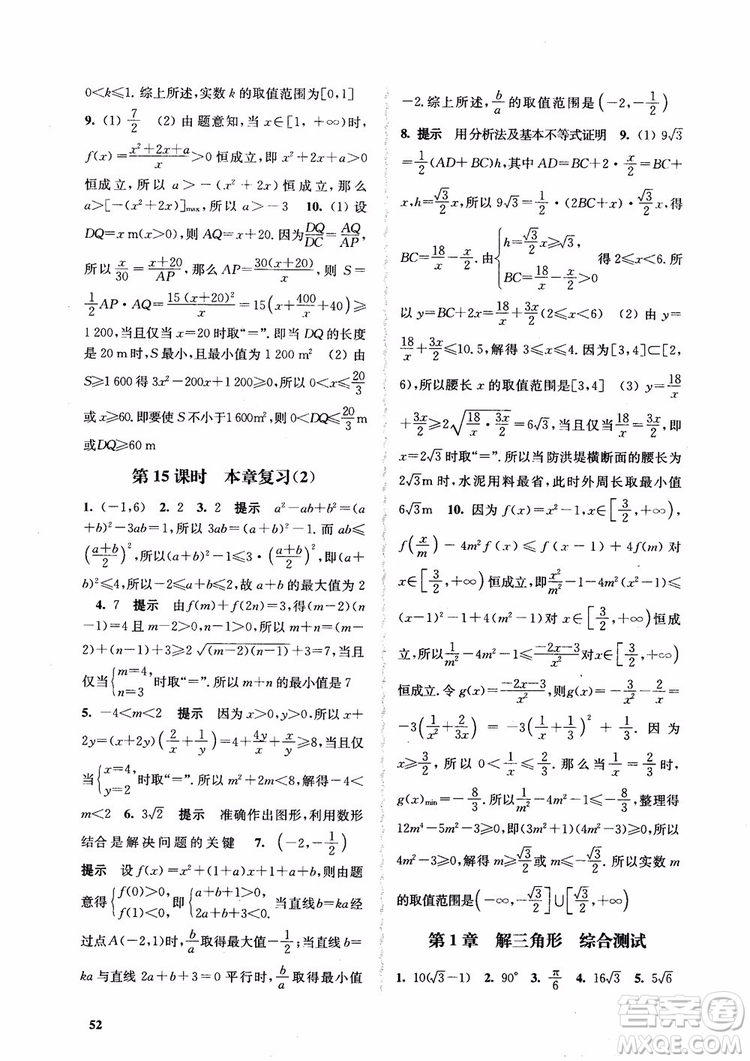 0<k≤1. 综上所述,实数 k 的取值范围为[0,1]
9. (1) 7/2 (2) 由题意知,当 x∈[1,+∞)时,
f(x)=(x²+2x+a)/x>0 恒成立,即 x²+2x+a>0
恒成立,所以 a>-(x²+2x)恒成立,那么
a>[-(x²+2x)]max,所以 a>-3 10. (1) 设
DQ=x m(x>0),则 AQ=x+20. 因为DQ/DC=AQ/AP,
所以 x/30=(x+20)/AP,所以 AP=30(x+20)/x,则 S=
1/2 AP·AQ=15(x+20)²/x=15(x+400/x+40)≥
1 200,当且仅当 x=20时取“=”. 即当 DQ的长度
是 20 m时,S最小,且最小值为 1 200 m² (2) 由
S≥1 600得 3x²-200x+1 200≥0,所以 0<x≤20/3
或x≥60. 即要使 S不小于1 600 m²,则 0<DQ≤20/3 m
或DQ≥60 m
第 15 课时 本章复习(2)
1. (-1,6) 2. 2 3. 2 提示 a²-ab+b²=(a
+b)²-3ab=1,所以(a+b)²=1+3ab. 因为ab≤
((a+b)/2)²,所以(a+b)²≤1+3((a+b)/2)²,即(a+
b)²≤4,所以-2≤a+b≤2,所以 a+b的最大值为 2
4. 7 提示 由f(m)+f(2n)=3,得(m-2)(n-
1)=4,且 m-2>0,n-1>0,所以 m+n=(m-2)
+(n-1)+3≥2√((m-2)(n-1))+3=7,当且
仅当{m=4, n=3 时取“=”. 所以 m+n的最小值是 7
5. -4<m<2 提示 因为 x>0,y>0,所以 x+
2y=(x+2y)(2/x+1/y)=4+4y/x+x/y≥8,当且仅
当{x=4, y=2 时取“=”,所以 m²+2m<8,解得-4<
m<2 6. 3√2 提示 准确作出图形,利用数形
结合是解决问题的关键 7. (-2,-1/2)
提示 设f(x)=x²+(1+a)x+1+a+b,则由题
意得{f(0)>0, f(1)<0, 即{1+a+b>0, 2a+b+3<0. 当直线 b=ka经
过点A(-2,1)时,b/a取得最大值-1/2;当直线b=
ka 与直线 2a+b+3=0 平行时,b/a取得最小值
-2. 综上所述,b/a的取值范围是(-2,-1/2)
8. 提示 用分析法及基本不等式证明 9. (1) 9√3
=1/2(AD+BC)h,其中 AD=BC+2·x/2=BC+
x,h=√3/2 x,所以 9√3=1/2·(2BC+x)·√3/2 x,得
BC=18/x-x/2. 由{h=√3/2 x≥√3, BC=18/x-x/2>0 得 2≤x<6. 所
以 y=BC+2x=18/x+3x/2(2≤x<6) (2) 由 y=
18/x+3x/2≤10.5,解得 3≤x≤4. 因为[3,4]⊂[2,
6),所以腰长 x 的取值范围是[3,4] (3) y=18/x
+3x/2≥2√(18/x·3x/2)=6√3,当且仅当18/x=3x/2,即 x
=2√3∈[2,6)时取“=”. 所以当防洪堤横断面的
腰长为2√3 m时,水泥用料最省,此时外周长取最小值
6√3 m 10. 因为 f(x)=x²-1,所以不等式
f(x/m)-4m²f(x)≤f(x-1)+4f(m)对x∈[3/2,
+∞)恒成立,即x²/m²-1-4m²(x²-1)≤
(x-1)²-1+4(m²-1)对 x∈[3/2,+∞)恒成
立,所以1/m²-4m²≤(-2x-3)/x²+1 对x∈[3/2,+∞)
恒成立. 令 g(x)=(-2x-3)/x²,则g(x)=-3/x²-2/x=
-3(1/x+1/3x)²+1/3. 因为 x≥3/2,所以 0<1/x≤2/3,所以当1/x=2/3时,
g(x)min=-8/3,所以1/m²-4m²≤1-8/3,整理得
12m⁴-5m²-3≥0,所以(3m²+1)(4m²-3)≥0,所以
4m²-3≥0,解得 m≥√3/2或 m≤-√3/2,所以实数 m
的取值范围是(-∞,-√3/2]∪[√3/2,+∞)
第 1 章 解三角形 综合测试
1. 10(√3-1) 2. 90° 3. π/6 4. 16√3 5. 5√6
52
作业帮
MXQE.COM